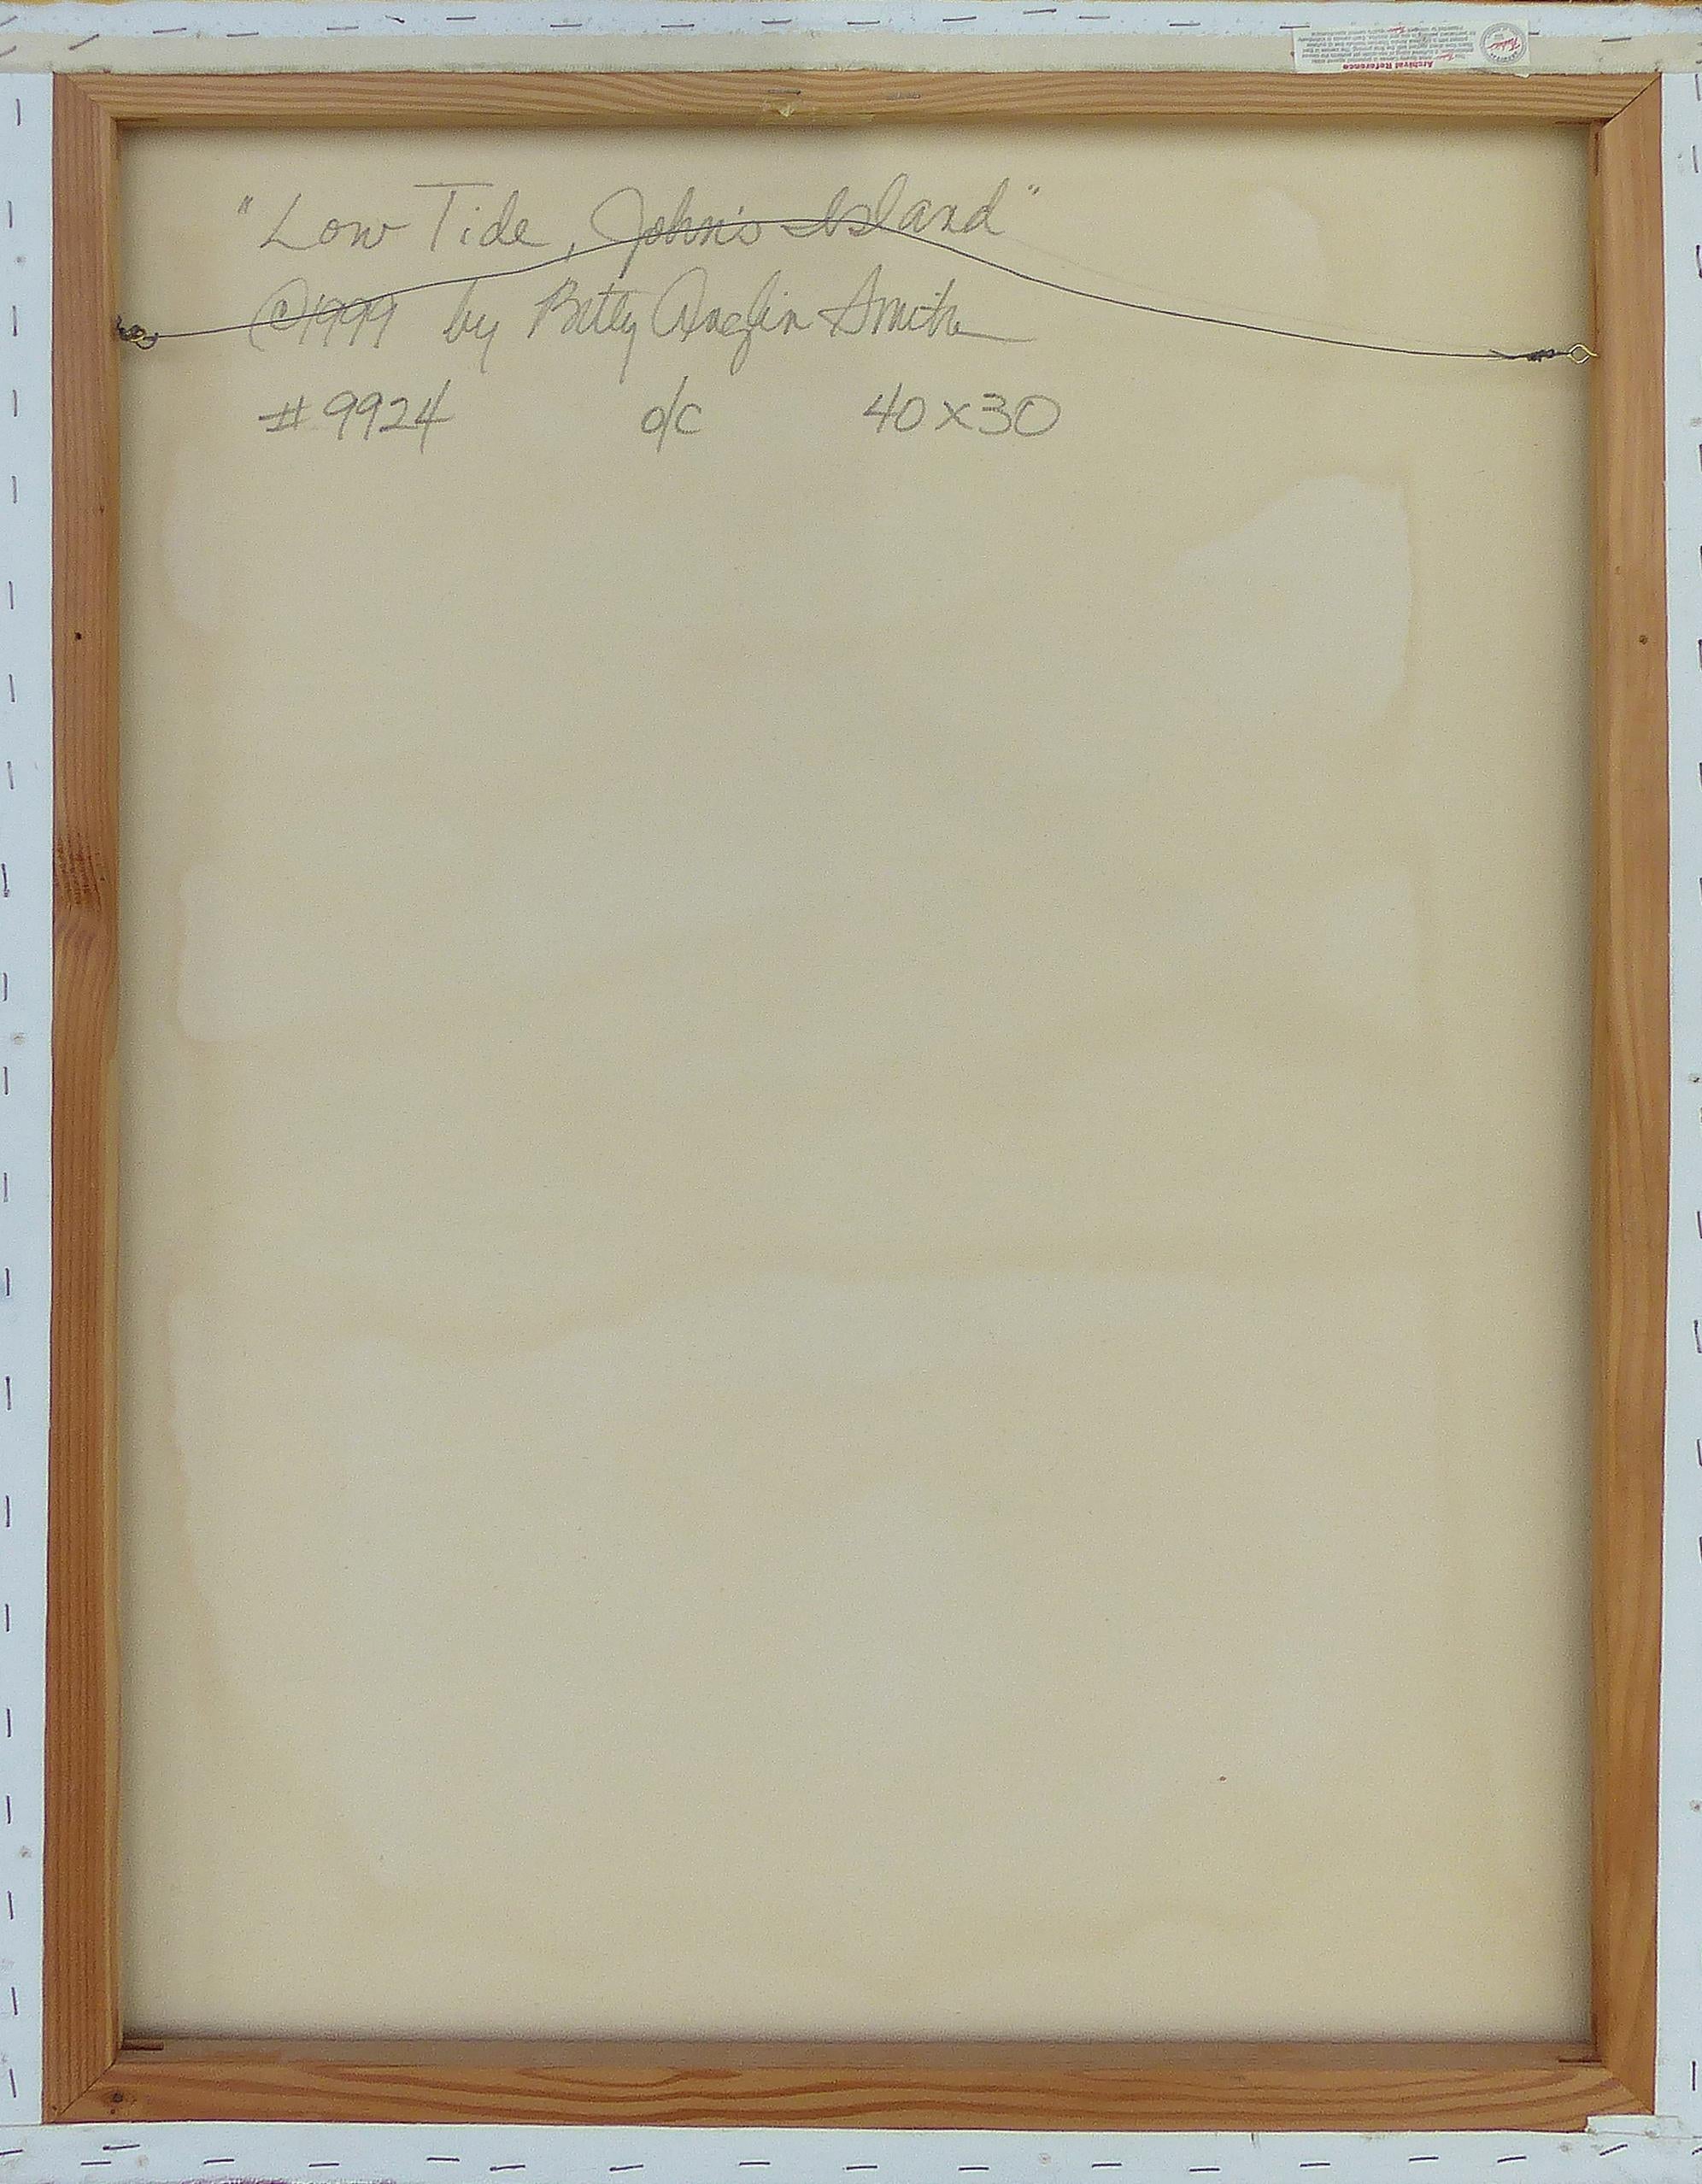 "Low Tide, John's Island"
©1999 by Betty Anglin Smith
#9924 o/c 40x30
Archival Reference